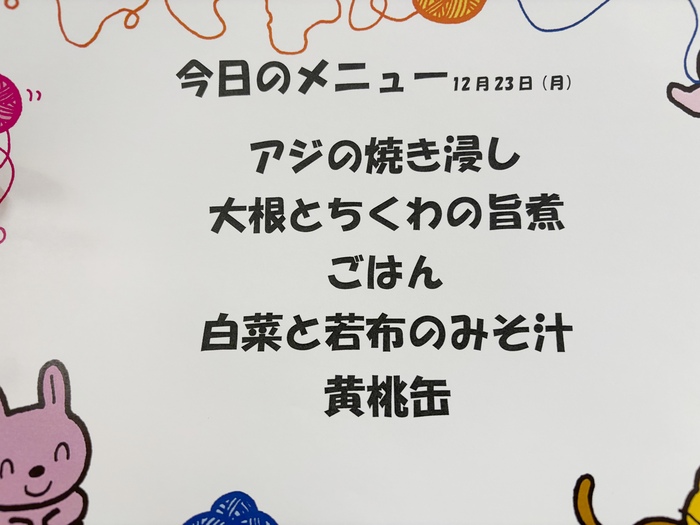 今日のメニュー12月23日（月）
アジの焼き浸し
大根とちくわの旨煮
ごはん
白菜と若布のみそ汁
黄桃缶